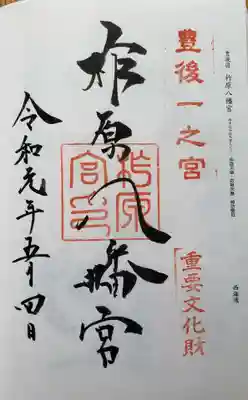 豊後一之宮
重要文化財
柞原八幡宮
柞原宮印
令和元年五月四日